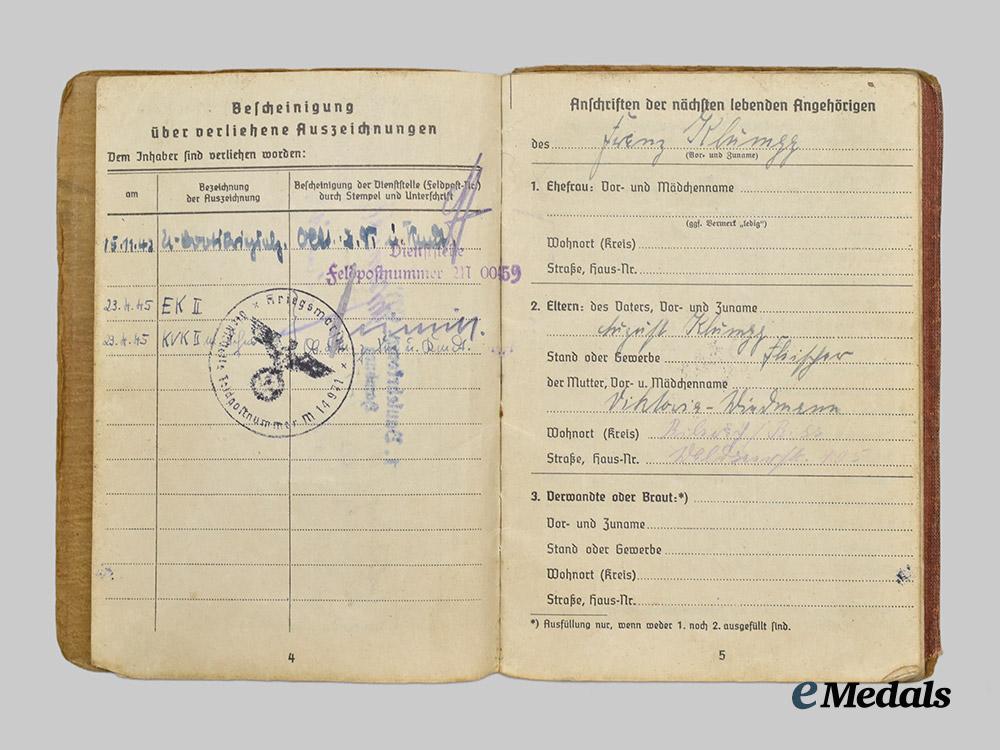 Bescheinigung
über verliehene Auszeichnungen
Dem Inhaber sind verliehen worden:
am
Bezeichnung der Auszeichnung
Bescheinigung der Dienststelle (Feldpost-Nr.) durch Stempel und Unterschrift
15.11.42 U-Boot
Dienststelle
Feldpostnummer M 00
23.4.45 EK II
23.4.45 KVK II
Kriegsmarine
Feldpostnummer M 14971
4
Anschriften der nächsten lebenden Angehörigen
des Franz Klumpp
(Vor- und Zuname)
1. Ehefrau: Vor- und Mädchenname
(ggf. Vermerk „ledig“)
Wohnort (Kreis)
Straße, Haus-Nr.
2. Eltern: des Vaters, Vor- und Zuname
August Klumpp
Stand oder Gewerbe Fleischer
der Mutter, Vor- u. Mädchenname
Viktoria - Wiedmann
Wohnort (Kreis)
Straße, Haus-Nr.
3. Verwandte oder Braut:*)
Vor- und Zuname
Stand oder Gewerbe
Wohnort (Kreis)
Straße, Haus-Nr.
*) Ausfüllung nur, wenn weder 1. noch 2. ausgefüllt sind.
5
eMedals